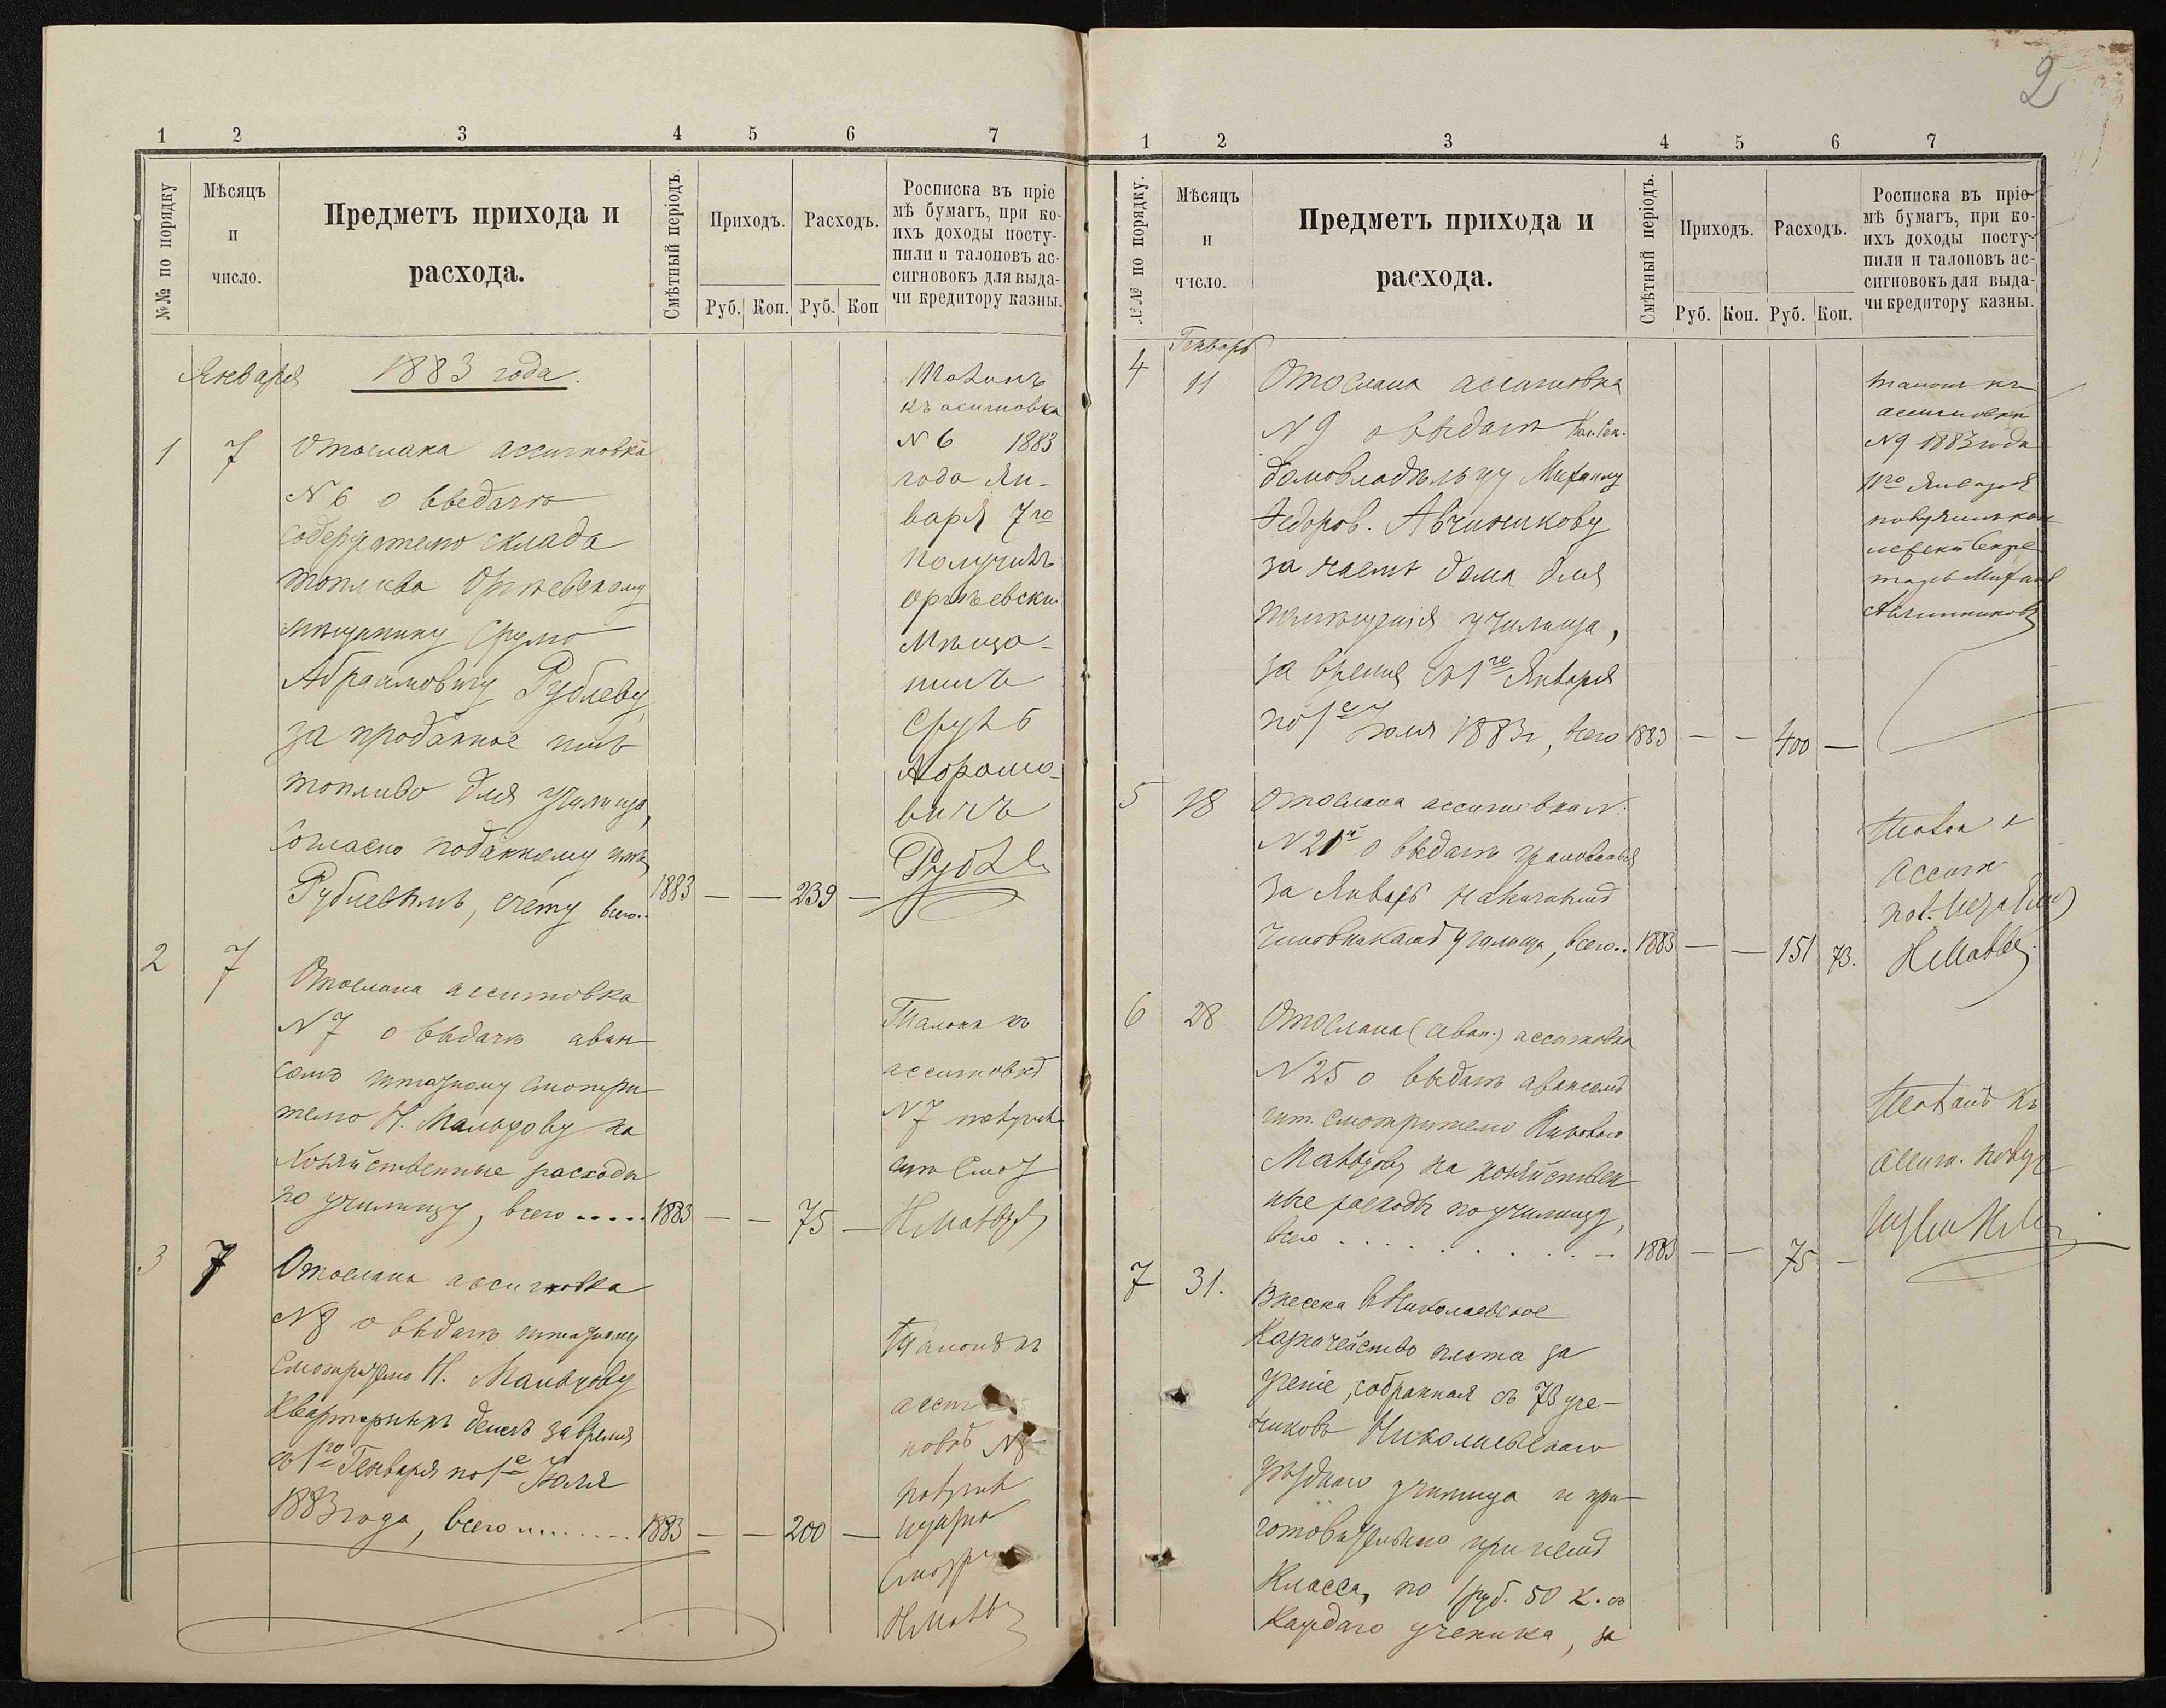 2
1 2 3 4 5 6 7
№№ по порядку
Мѣсяцъ
и
число.
Предметъ прихода и
расхода.
Смѣтный періодъ.
Приходъ. Расходъ.
Руб. Коп. Руб. Коп
Росписка въ пріе
мѣ бумагъ, при ко-
ихъ доходы посту-
пили и талоновъ ас-
сигновокъ для выда-
чи кредитору казны.
Января 1883 года.
1 7 Отослана ассигновка
№ 6 о выдачѣ
содержателю склада
топлива
мѣщанину Срулю
Абрамовичу Рублеву,
за проданное имъ
топливо для училища,
согласно поданному имъ,
Рублевымъ, счету всего.. 1883 — — 239 —
Талонъ
къ асигновка
№ 6 1883
года Ян-
варя 7го
Получилъ
Мѣща-
нинъ
Сруль
Абрамо-
вичъ
2 7 Отослана ассигновка
№ 7 о выдачѣ аван-
сомъ штатному смотри-
телю Н. на
хозяйственные расходы
по училищу, всего ..... 1883 — — 75 —
Талонъ къ
ассигновкѣ
№ 7 получилъ
3 7 Отослана ассигновка
№ 8 о выдачѣ штатному
смотрителю Н.
квартирныхъ денегъ за время
съ 1го Генваря по 1е Юля
1883 года, всего ........ 1883 — — 200 —
Талонъ къ
№ 8
получилъ
1 2 3 4 5 6 7
№№ по порядку.
Мѣсяцъ
и
число.
Предметъ прихода и
расхода.
Смѣтный періодъ.
Приходъ. Расходъ.
Руб. Коп. Руб. Коп.
Росписка въ пріе-
мѣ бумагъ, при ко-
ихъ доходы посту-
пили и талоновъ ас-
сигновокъ для выда-
чи кредитору казны.
Генварь
4 11 Отослана ассигновка
№ 9 о выдачѣ Кол. Сек.
домовладѣльцу Михаилу
Федоров. Авчинникову
за наемъ дома для
помѣщенія училища,
за время съ 1го Января
по 1е Юля 1883 г, всего 1883 — — 400 —
талонъ къ
ассигновки
№ 9 1883 года
11го Января
получилъ кол
лежскій Секре
тарь Михаилъ
Авчинниковъ
5 18 Отослана ассигновка №.
№ 21й о выдачѣ жалованья
за Январь
чиновникамъ училища, всего.. 1883 — — 151 73.
Талон
ассигн
6 28 Отослана (аван.) ассигновка
№ 25 о выдачѣ авансомъ
шт. смотрителю
на хозяйствен
ные расходы по училищу,
всего . . . . . . . . . 1883 — — 75 —
Талонъ къ
ассиг. получ
7 31. Внесена въ Николаевское
Казначейство плата за
ученіе, собранная съ 73 уче-
никовъ Николаевскаго
уѣзднаго училища и при-
готовительнаго при немъ
Класса, по 1 руб. 50 к. съ
каждаго ученика, за